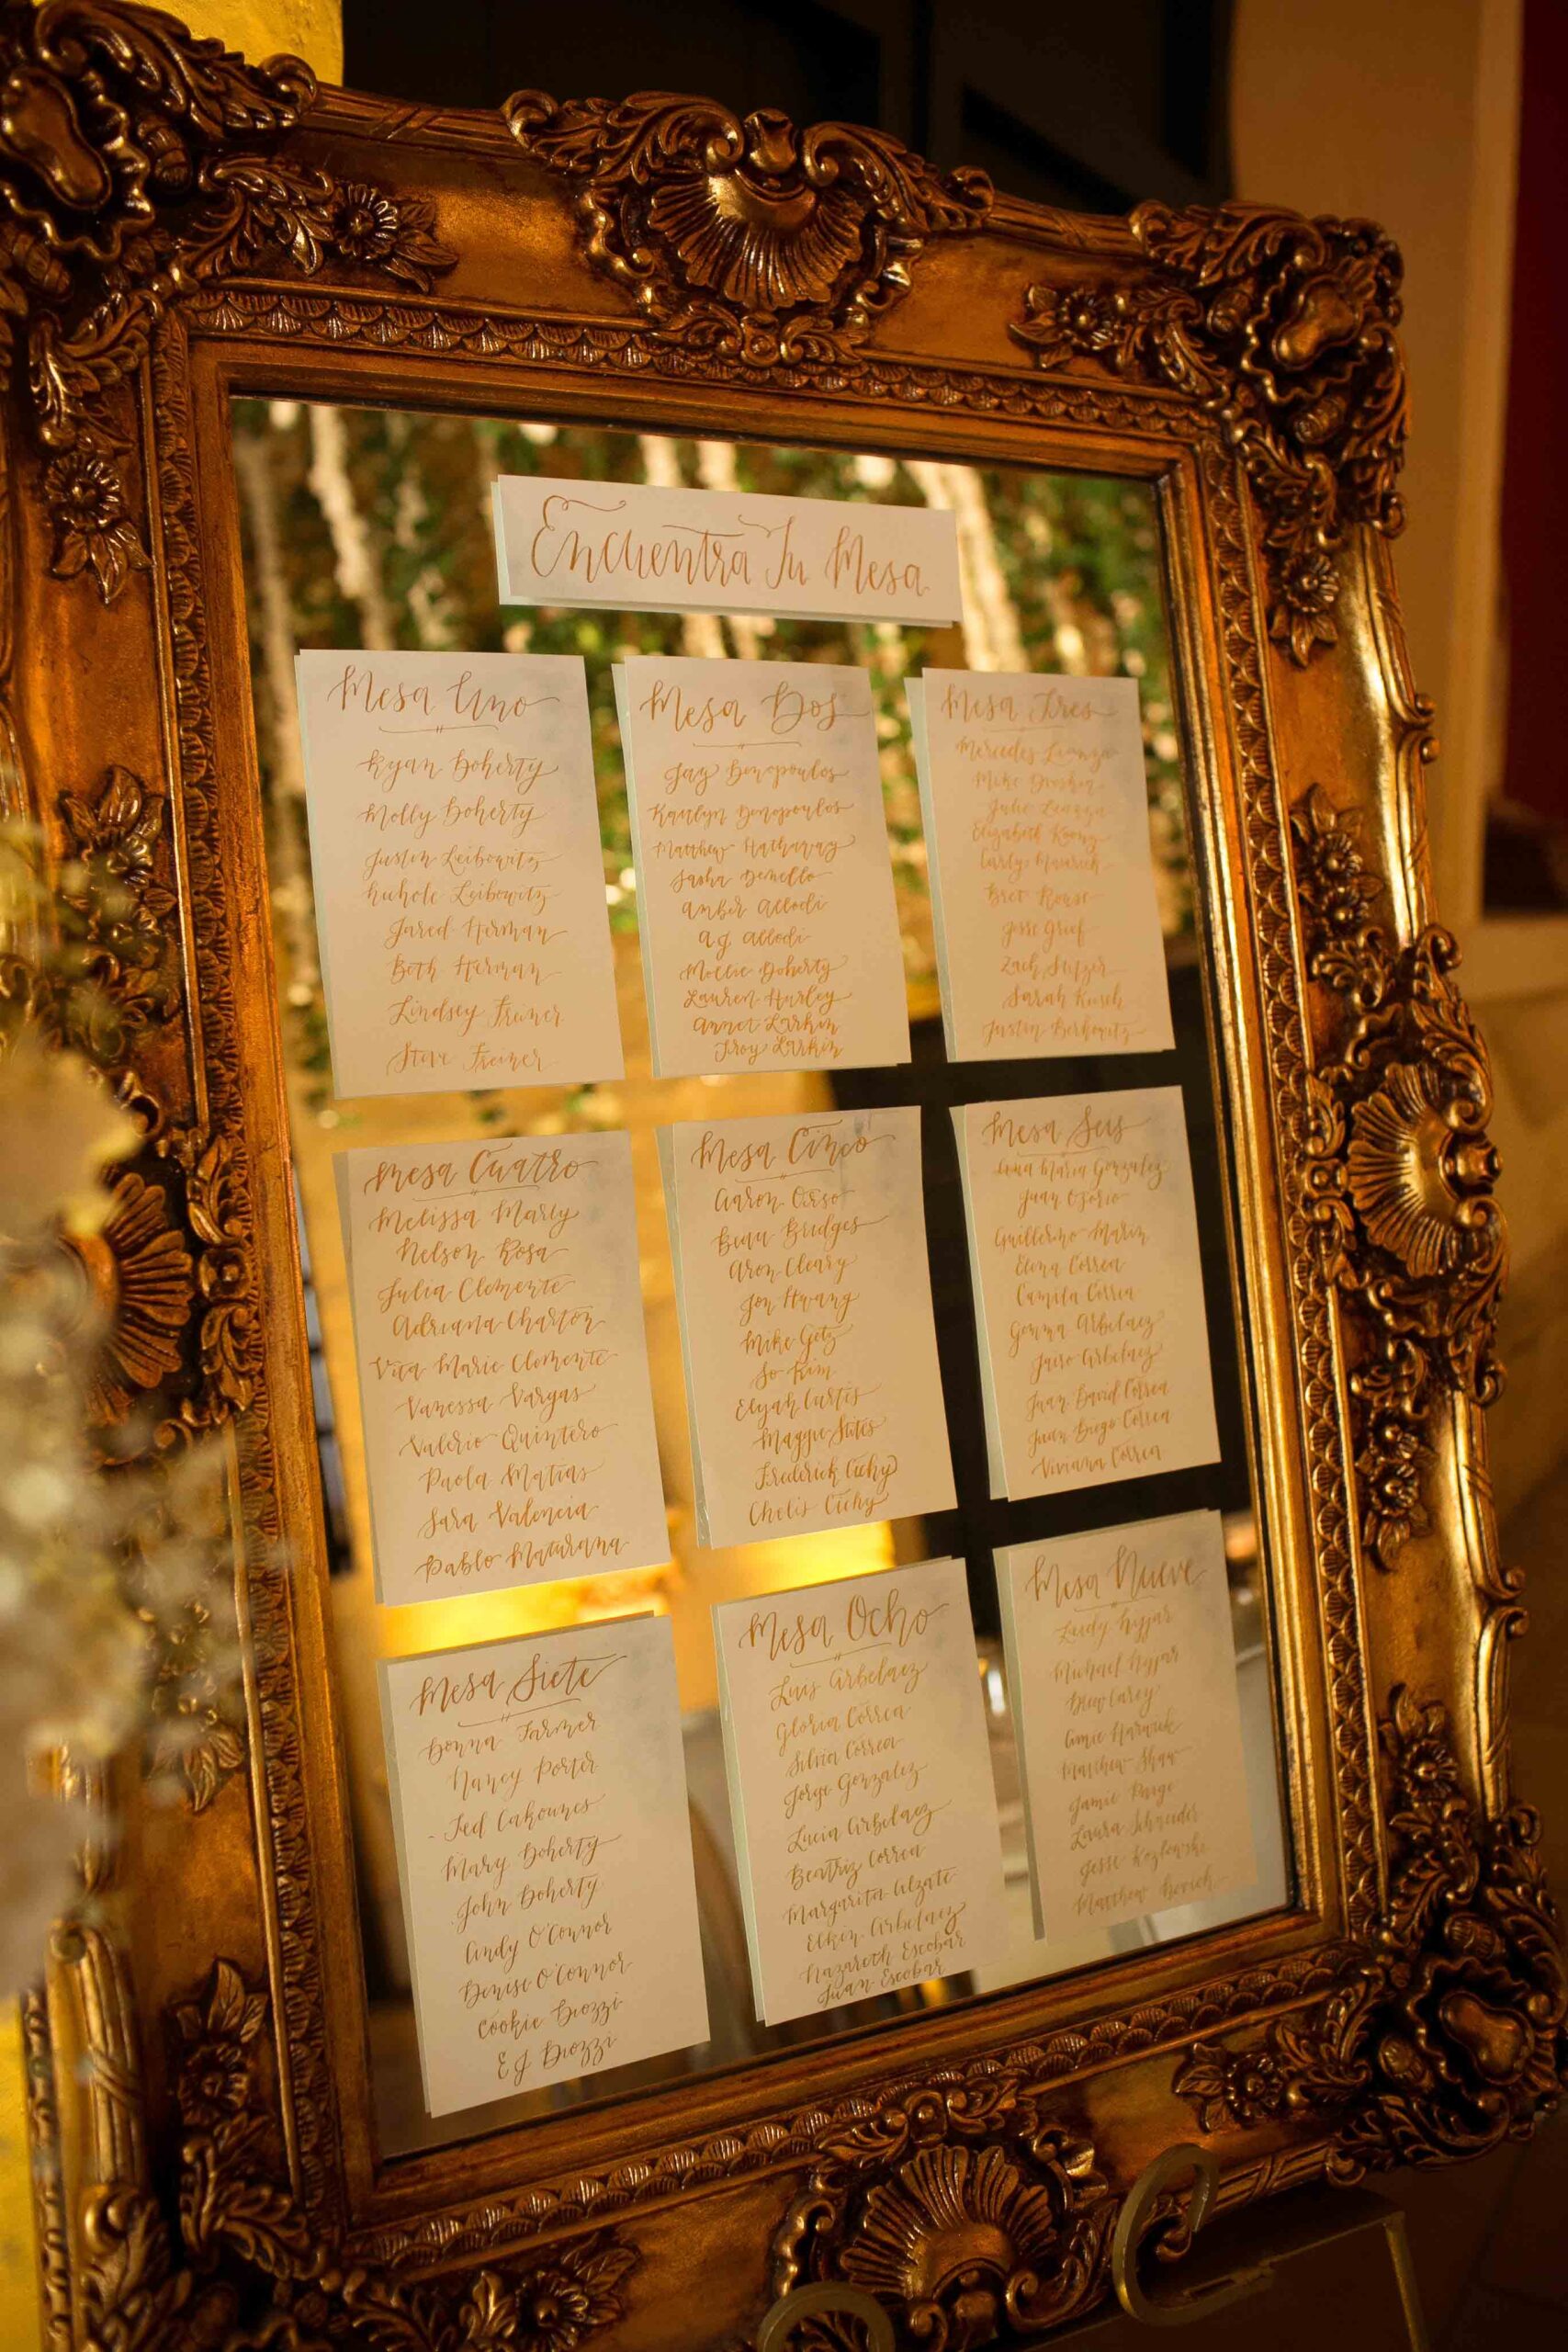 Encuentra Tu Mesa
Mesa Uno
Ryan Doherty
Molly Doherty
Justin Leibowitz
Nichole Leibowitz
Jared Herman
Beth Herman
Lindsey Freiner
Steve Freiner
Mesa Dos
Jay Donopoulos
Kaitlyn Donopoulos
Matthew Hathaway
Sasha Denello
Amber Allodi
AJ Allodi
Mollie Doherty
Lauren Hurley
Annet Larkin
Troy Larkin
Mesa Tres
Mercedes Luanza
Mike
Julie Luanza
Elizabeth Koong
Carly
Bret Rouse
Jesse Grief
Zach Seltzer
Sarah Kirsch
Justin Berkowitz
Mesa Cuatro
Melissa Marly
Nelson Rosa
Julia Clemente
Adriana Charton
Vita Marie Clemente
Vanessa Vargas
Valerio Quintero
Paola Matias
Sara Valencia
Pablo Maturana
Mesa Cinco
Aaron Orso
Beau Bridges
Aron Cleary
Jon Hwang
Mike Getz
So Kim
Elyah Curtis
Maggie Stites
Frederick Cichy
Chelis Cichy
Mesa Seis
Luna Maria Gonzalez
Juan Osorio
Guillermo Marin
Elena Correa
Camila Correa
Gemma Arbelaez
Jairo Arbelaez
Juan David Correa
Juan Diego Correa
Viviana Correa
Mesa Siete
Donna Farmer
Nancy Porter
Ted Cakounes
Mary Doherty
John Doherty
Andy O'Connor
Denise O'Connor
Cookie Diozzi
EJ Diozzi
Mesa Ocho
Luis Arbelaez
Gloria Correa
Silvia Correa
Jorge Gonzalez
Lucia Arbelaez
Beatriz Correa
Margarita Alzate
Elkin Arbelaez
Nazareth Escobar
Juan Escobar
Mesa Nueve
Lindy Nyjar
Michael Nyjar
Drew Carey
Amie Harwick
Matthew Shaw
Jamie Paige
Laura Schneider
Jesse Kozlowski
Matthew